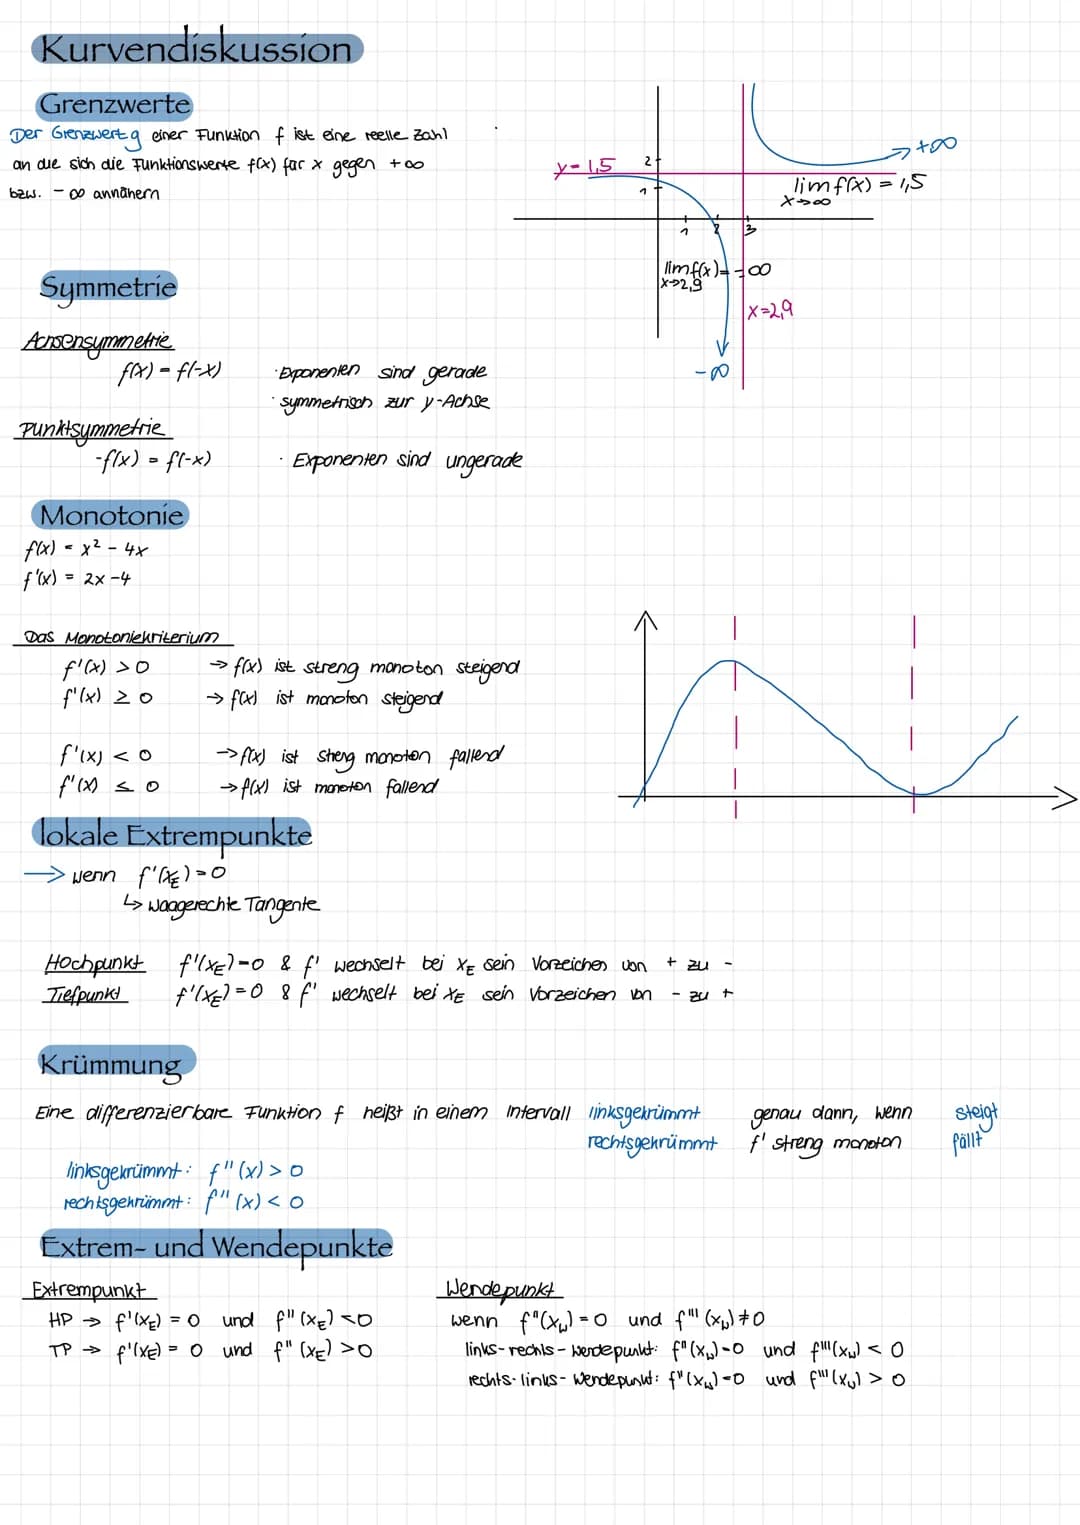 Kurvendiskussion
Grenzwerte
Der Grenzwert g einer Funktion f ist eine reelle Zahl
an die sich die Funktionswerte f(x) für x gegen +∞
bzw. -∞ annähern
y=1,5
2
1
1
2
3
→ +∞
lim f(x) = 1,5
x→∞
lim f(x) = -∞
x→2,9
x=2,9
-∞
Symmetrie
Achsensymmetrie
f(x) = f(-x)
· Exponenten sind gerade
· symmetrisch zur y-Achse
Punktsymmetrie
-f(x) = f(-x)
· Exponenten sind ungerade
Monotonie
f(x) = x² - 4x
f'(x) = 2x -4
Das Monotoniekriterium
f'(x) > 0 → f(x) ist streng monoton steigend
f'(x) ≥ 0 → f(x) ist monoton steigend
f'(x) < 0 → f(x) ist streng monoton fallend
f'(x) ≤ 0 → f(x) ist monoton fallend
lokale Extrempunkte
→ wenn f'(x_E) = 0
↳ waagerechte Tangente
Hochpunkt f'(x_E) = 0 & f' wechselt bei x_E sein Vorzeichen von + zu -
Tiefpunkt f'(x_E) = 0 & f' wechselt bei x_E sein Vorzeichen von - zu +
Krümmung
Eine differenzierbare Funktion f heißt in einem Intervall linksgekrümmt genau dann, wenn steigt
rechtsgekrümmt f' streng monoton fällt
linksgekrümmt: f''(x) > 0
rechtsgekrümmt: f''(x) < 0
Extrem- und Wendepunkte
Extrempunkt
HP → f'(x_E) = 0 und f''(x_E) < 0
TP → f'(x_E) = 0 und f''(x_E) > 0
Wendepunkt
wenn f''(x_w) = 0 und f'''(x_w) ≠ 0
links-rechts-Wendepunkt: f''(x_w) = 0 und f'''(x_w) < 0
rechts-links-Wendepunkt: f''(x_w) = 0 und f'''(x_w) > 0